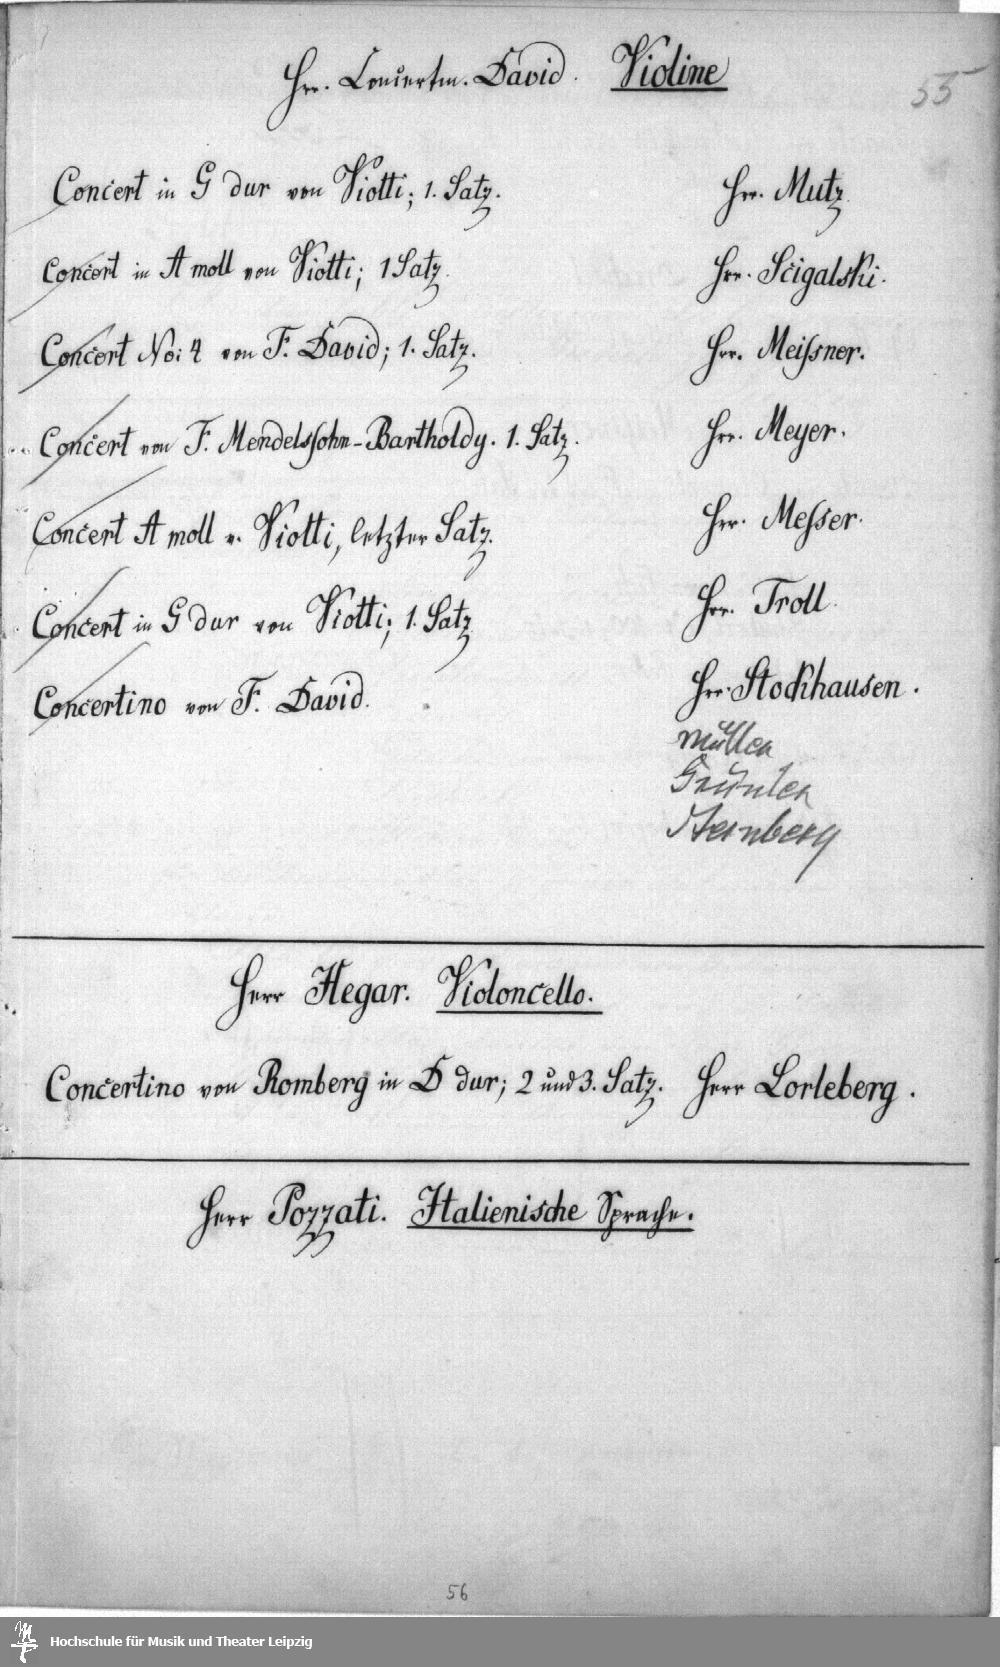 Hrr. Concertm. David. Violine
55
Concert in G dur von Viotti; 1. Satz. Hrr. Mutz.
Concert in A moll von Viotti; 1 Satz. Hrr. Scigalski.
Concert No: 4 von F. David; 1. Satz. Hrr. Meiſsner.
Concert von F. Mendelsſohn-Bartholdy. 1. Satz. Hrr. Meyer.
Concert A moll v. Viotti, letzter Satz. Hrr. Meſser.
Concert in G dur von Viotti; 1. Satz Hrr. Troll.
Concertino von F. David. Hrr. Stockhausen.
Müller
Grünler
Sternberg
Herr Hegar. Violoncello.
Concertino von Romberg in D dur; 2 und 3. Satz. Herr Lorleberg.
Herr Pozzati. Italienische Sprache.
56
Hochschule für Musik und Theater Leipzig